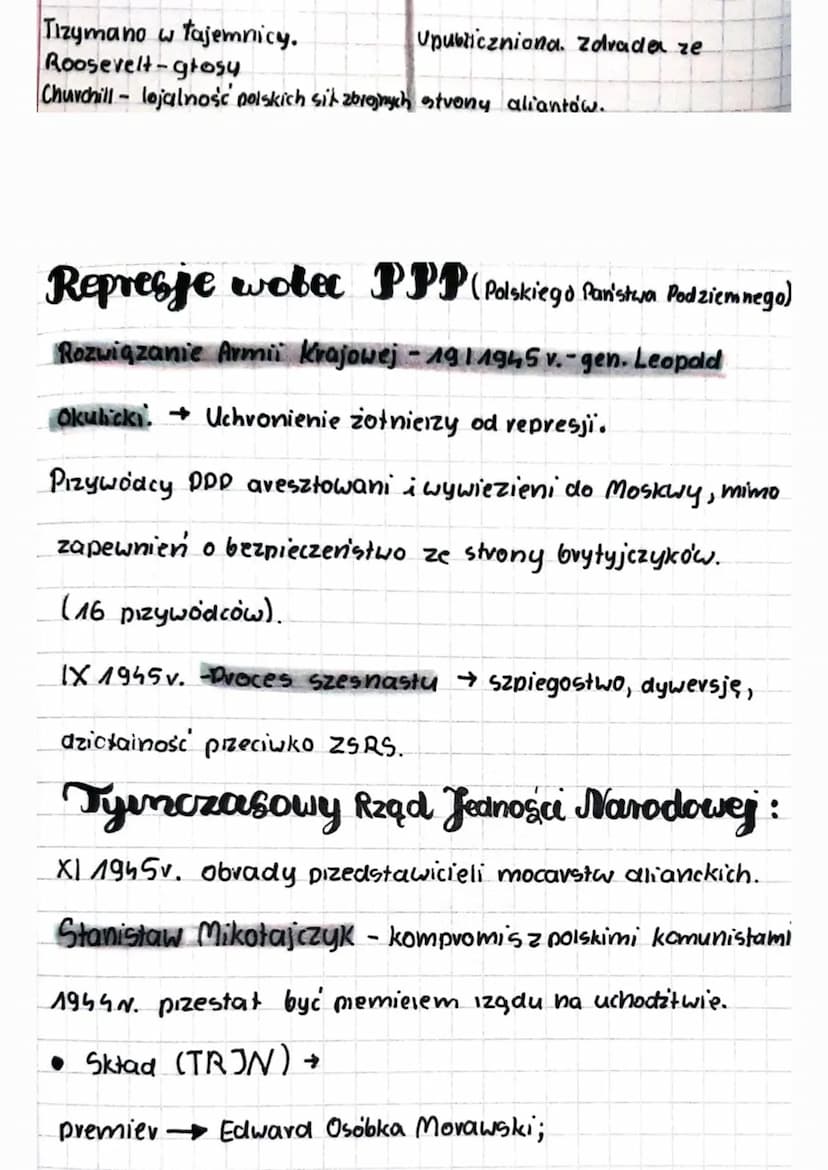 Trzymano w tajemnicy.
Upubliczniona. Zdrada ze
Roosevelt - głosy
Churchill - lojalność polskich sił zbrojnych
strony aliantów.
Represje wobec PPP (Polskiego Państwa Podziemnego)
Rozwiązanie Armii Krajowej - 19 I 1945 r. - gen. Leopold
Okulicki. → Uchronienie żołnierzy od represji.
Przywódcy PPP aresztowani i wywiezieni do Moskwy, mimo
zapewnień o bezpieczeństwo ze strony brytyjczyków.
(16 przywódców).
IX 1945 r. - Proces szesnastu → szpiegostwo, dywersję,
działalność przeciwko ZSRS.
Tymczasowy Rząd Jedności Narodowej :
XI 1945 r. obrady przedstawicieli mocarstw alianckich.
Stanisław Mikołajczyk - kompromis z polskimi komunistami
1944 r. przestał być premierem rządu na uchodźtwie.
• Skład (TRJN) →
premier → Edward Osóbka Morawski;